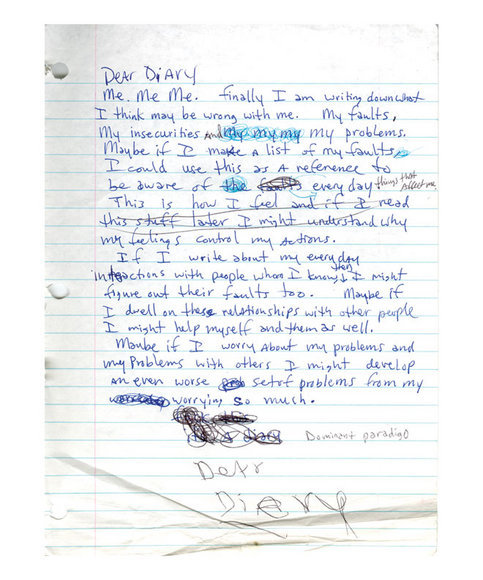 Dear Diary
Me. Me Me. finally I am writing down what
I think may be wrong with me. My faults,
My insecurities and my my my my problems.
Maybe if I make A list of my faults
I could use this as A reference to
be aware of the faults everyday things that Affect me.
This is how I feel and if I read
this stuff later I might understand why
my feelings control my Actions.
If I write about my everyday
interactions with people whom I know, then I might
figure out their faults too. Maybe if
I dwell on these relationships with other people
I might help myself and them as well.
Maybe if I worry About my problems and
my Problems with others I might develop
an even worse set of problems from my
worrying so much.
Dominant paradigo
Dear
Diery